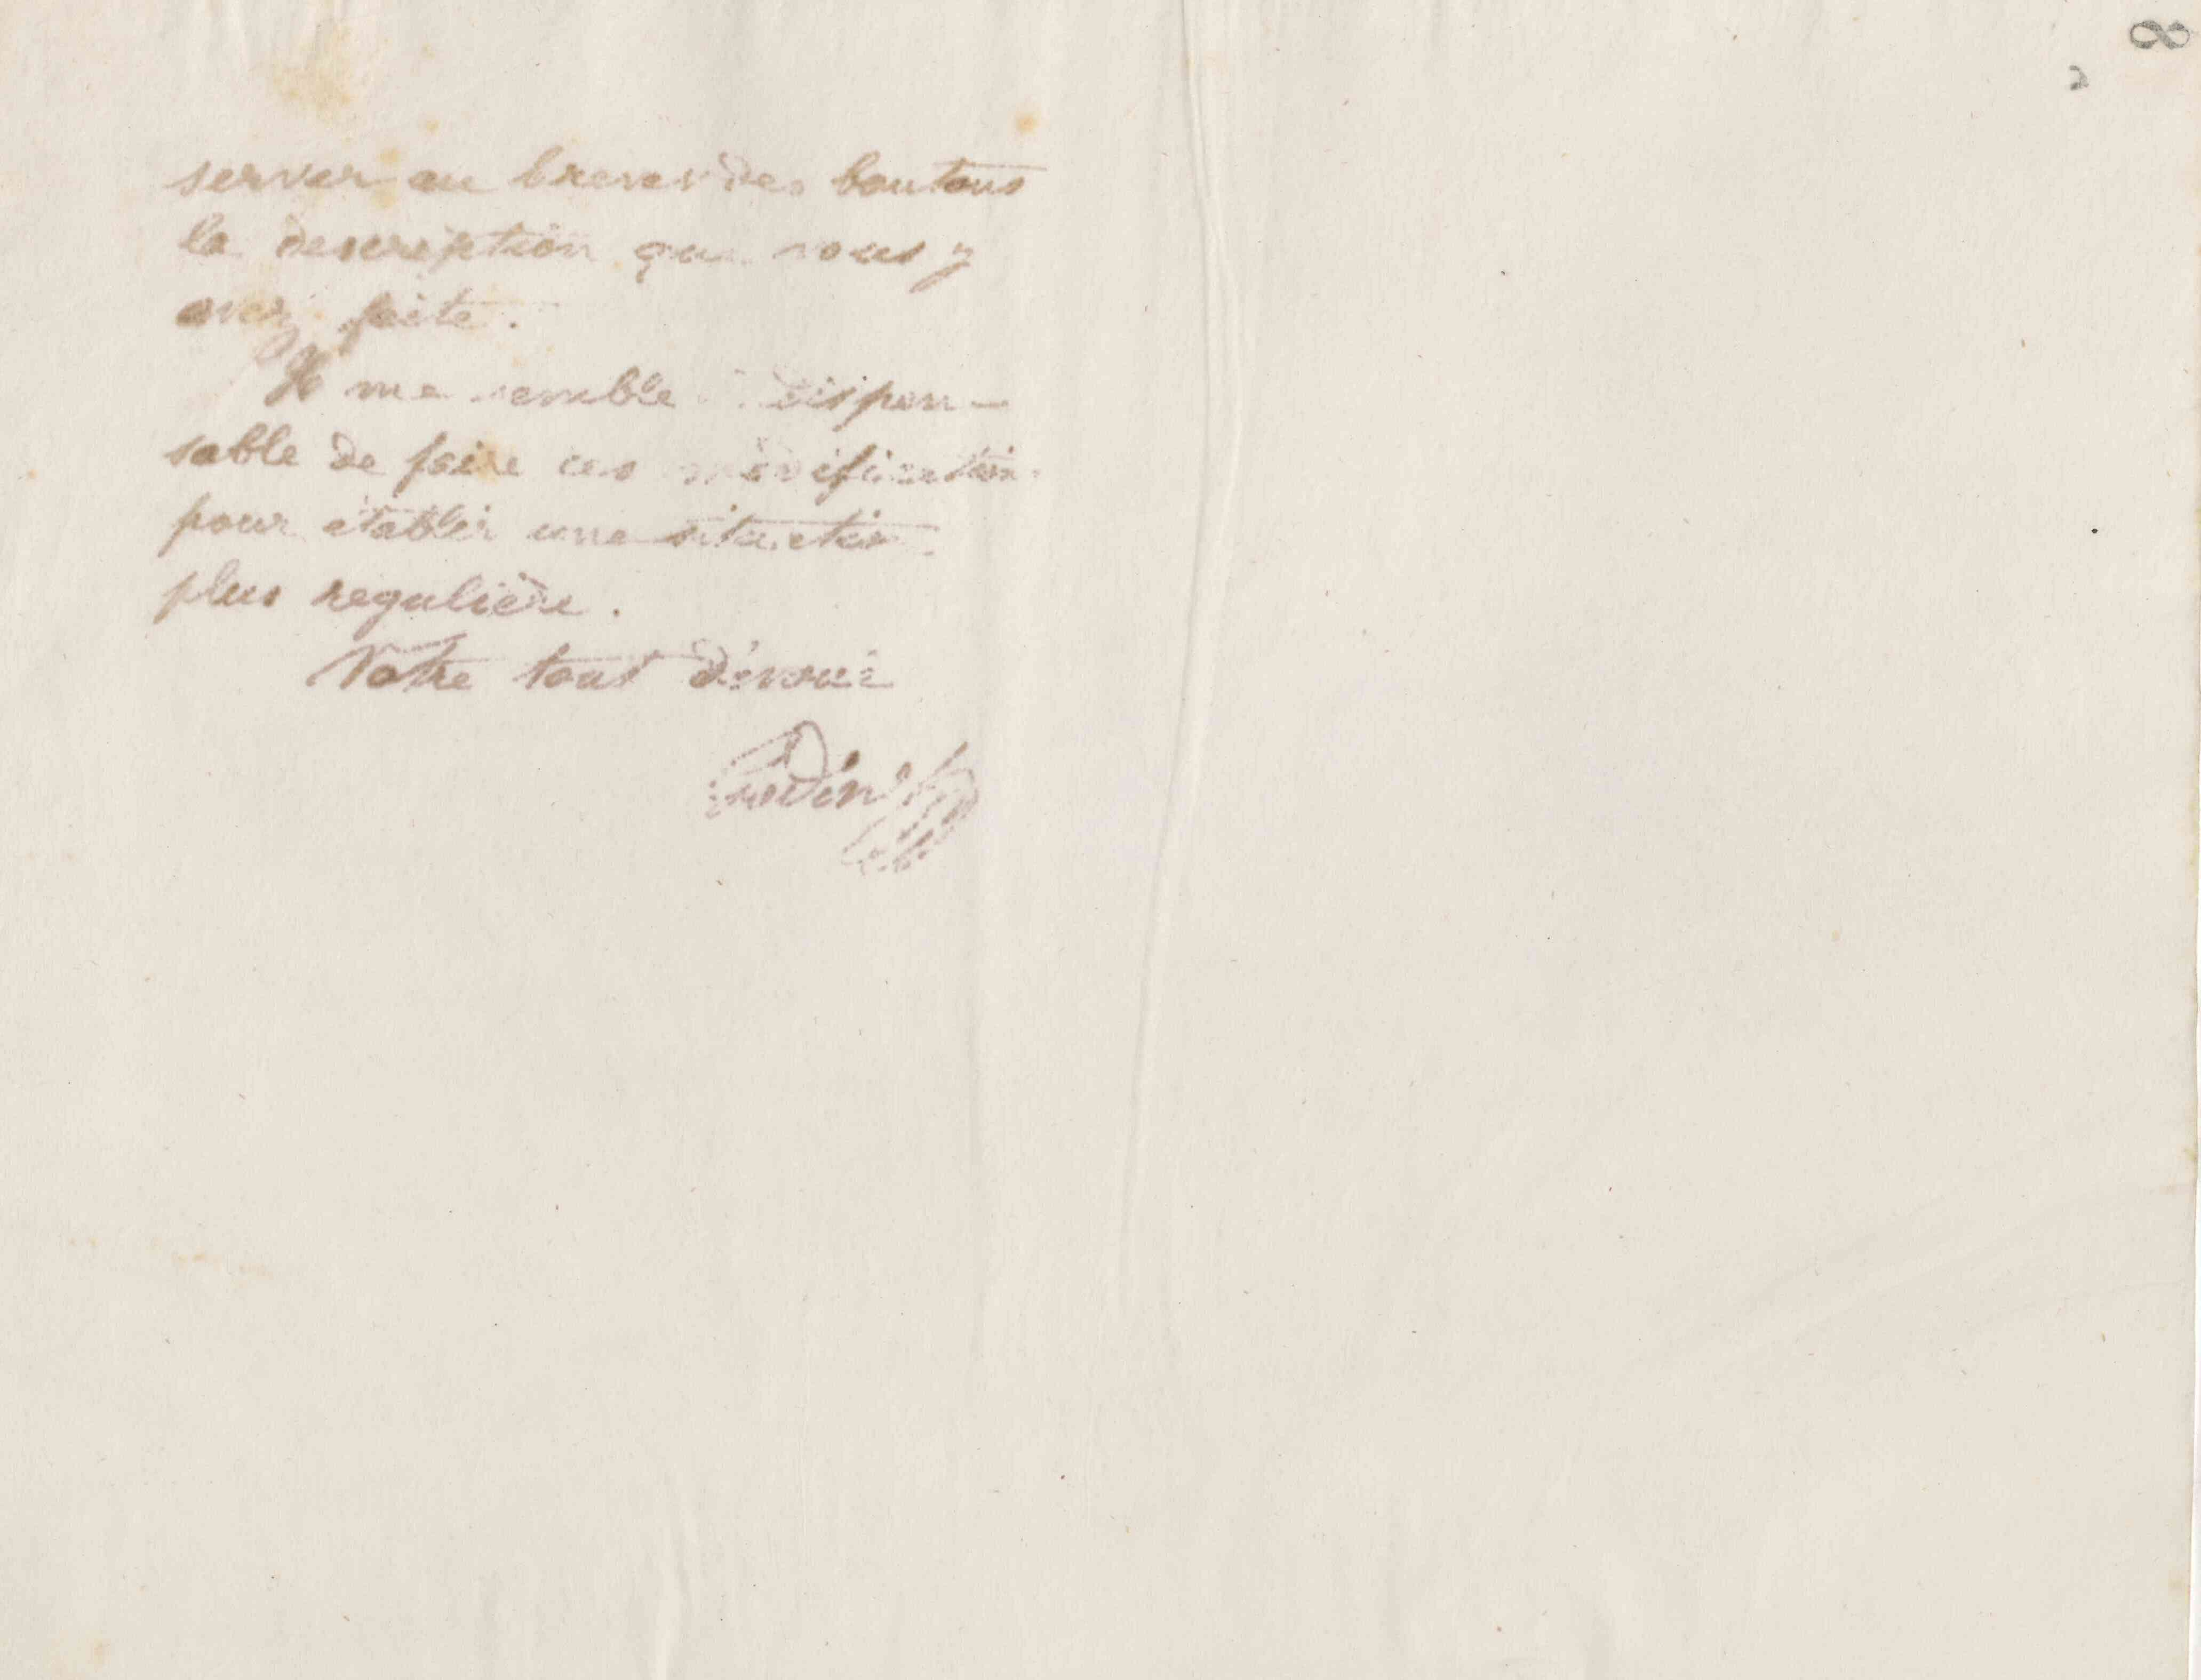 server au brevet des boutons
la description que vous y
avez faite.
Il me semble indispen-
sable de faire ces modifications
pour établir une situation
plus regulière.
Votre tout dévoué
Godin
8
2